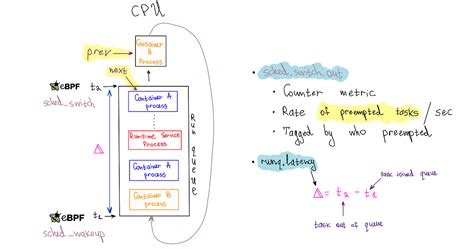 CPU
Container
B
process
prev
next
eBPF t₂
sched_switch
Container A
process
Runtime Service
Process
Container A
process
Container B
process
Run queue
Δ
eBPF t₁
sched_wakeup
• sched_switch_out
• Counter metric
• Rate of preempted tasks / sec
• Tagged by who preempted
• runq.latency
task joined queue
Δ = t₂ - t₁
task out of queue